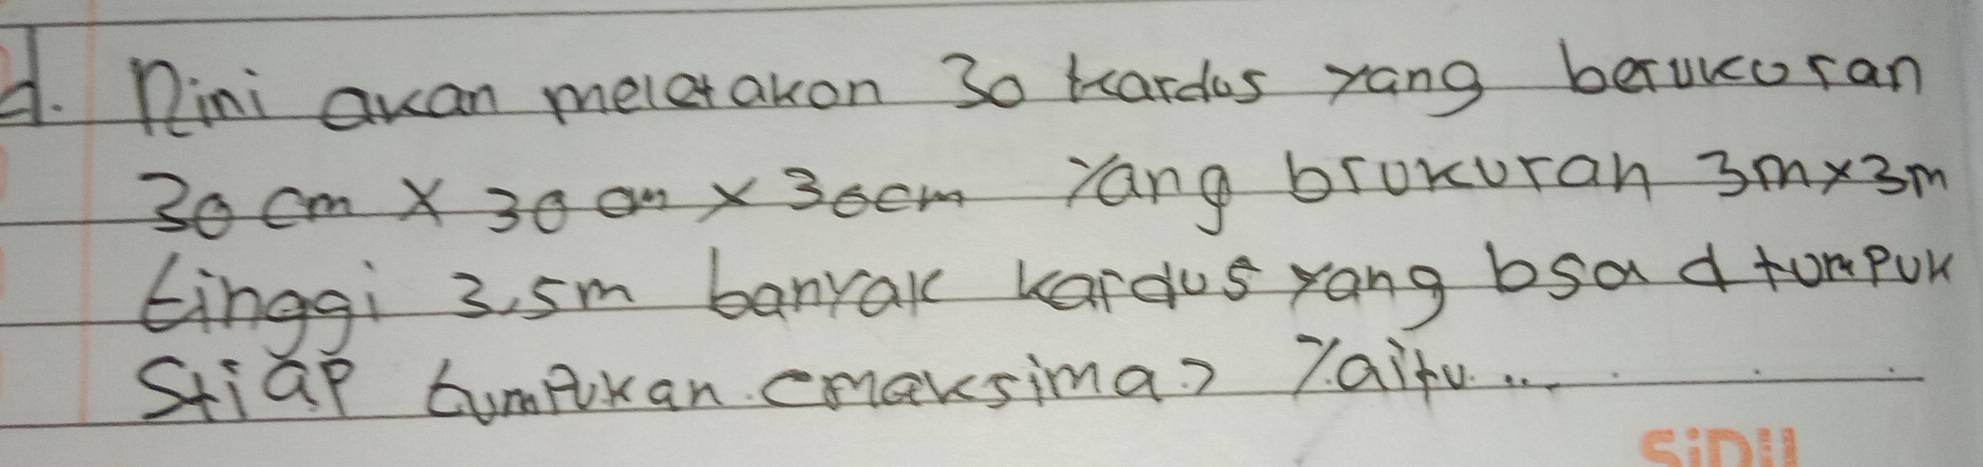 d. Rini akan meletakan 30 kardus yang berukuran
30 cm x 30 cm x 30cm yang brukuran 3m x 3m
tinggi 3,5m banyak kardus yang bsa d tumpuk
Stiap tumpukan cmaksima> yaitu.....
SiDU